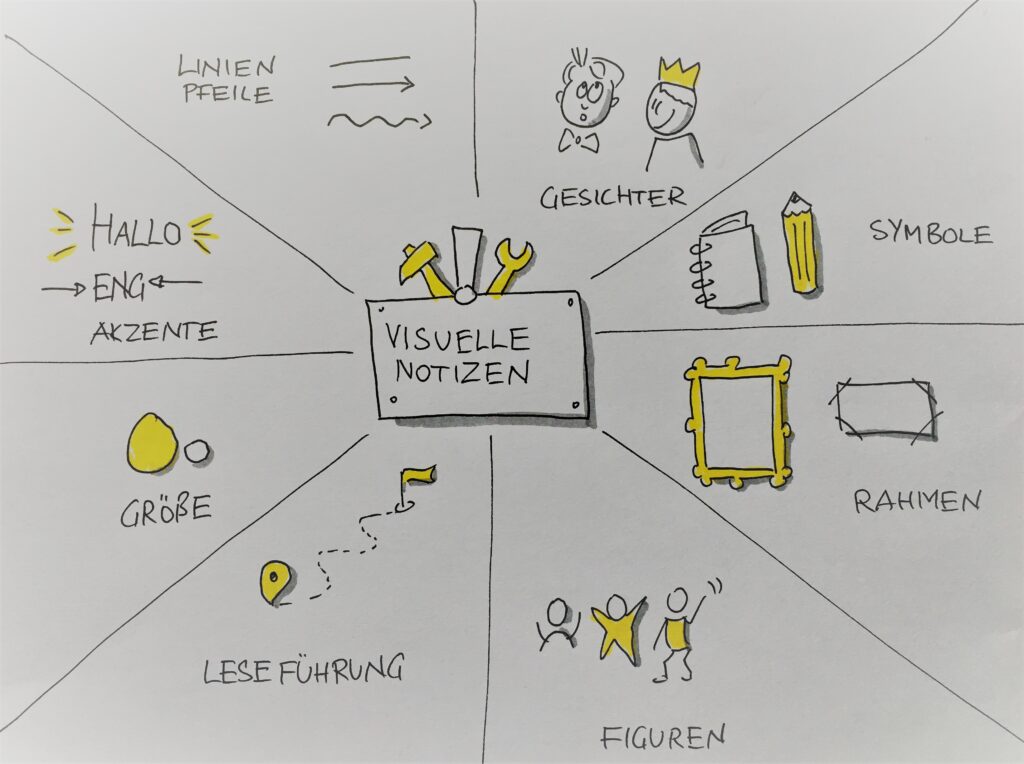 VISUELLE
NOTIZEN
LINIEN
PFEILE
GESICHTER
SYMBOLE
RAHMEN
FIGUREN
LESEFÜHRUNG
GRÖßE
HALLO
ENG
AKZENTE